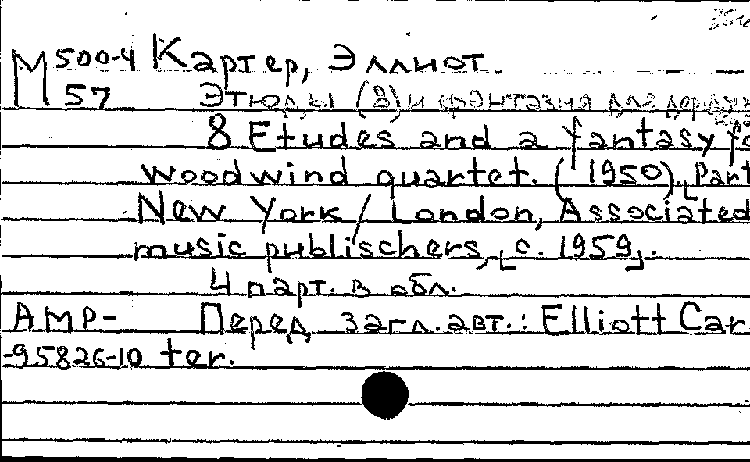 М 500-4 Картер, Эллиот.
57 Этюды (8) и фантазия для
8 Etudes and a fantasy fo
woodwind quartet. (1950). [Part
New York / London, Associated
music publischers, [c. 1959].
4 парт. в обл.
AMP- Перед загл. авт.: Elliott Car-
-95826-10 ter.